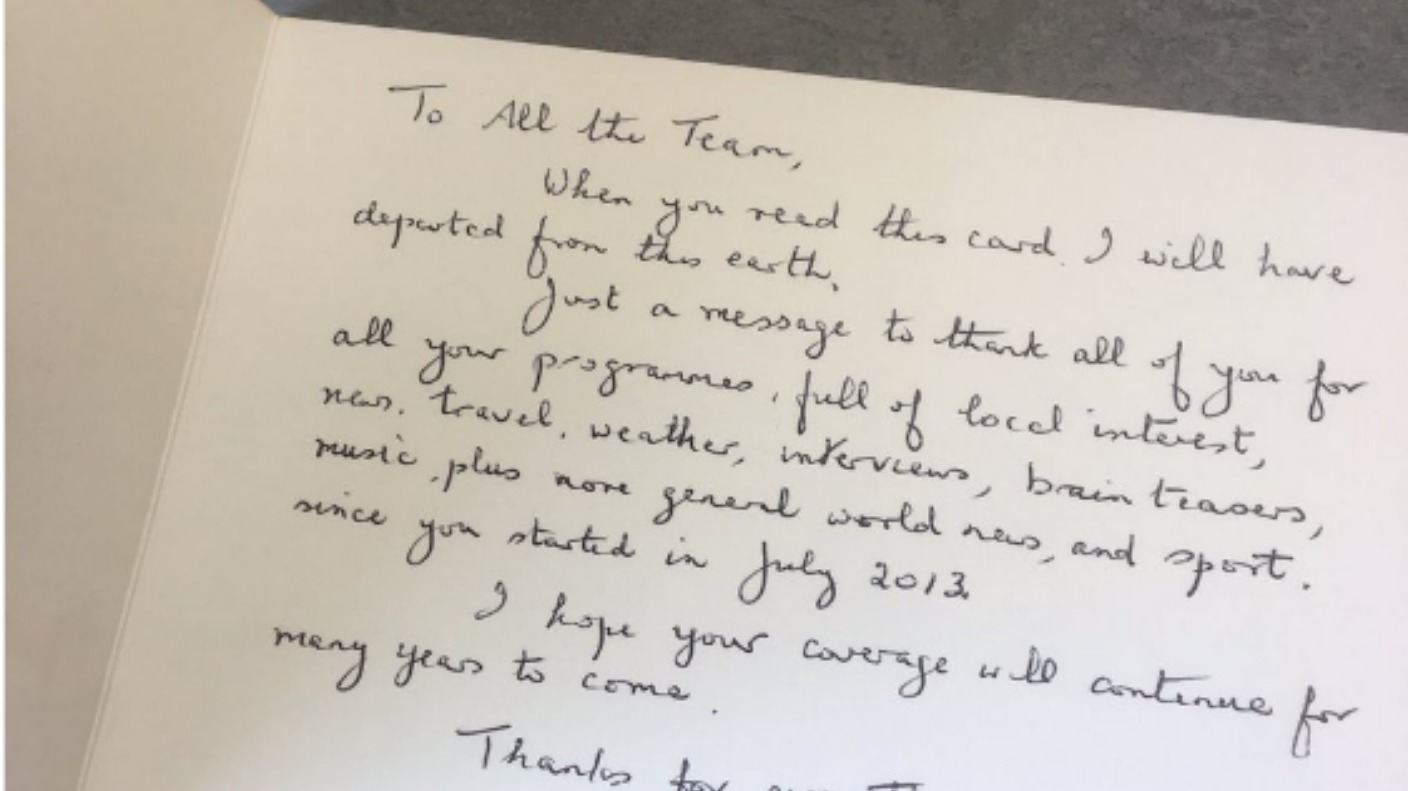 To All the Team,
When you read this card. I will have
departed from this earth.
Just a message to thank all of you for
all your programmes, full of local interest,
news, travel, weather, interviews, brain teasers,
music, plus more general world news, and sport.
since you started in July 2013.
I hope your coverage will continue for
many years to come.
Thanks for